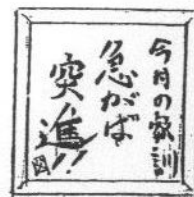 今月の家訓
急がば
突進!!